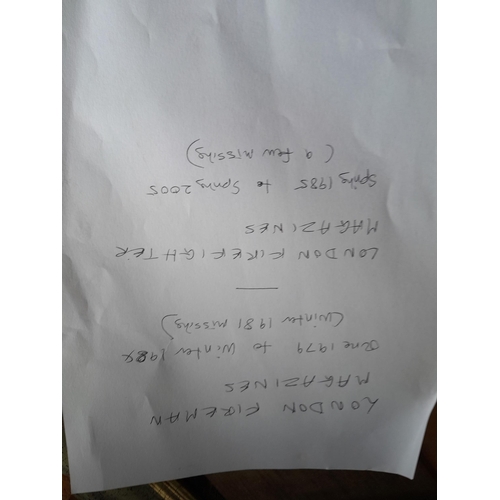 LONDON FIREMAN
MAGAZINES
June 1979 to Winter 1984
(Winter 1981 missing)
LONDON FIREFIGHTER
MAGAZINES
Spring 1985 to Spring 2005
(a few missing)